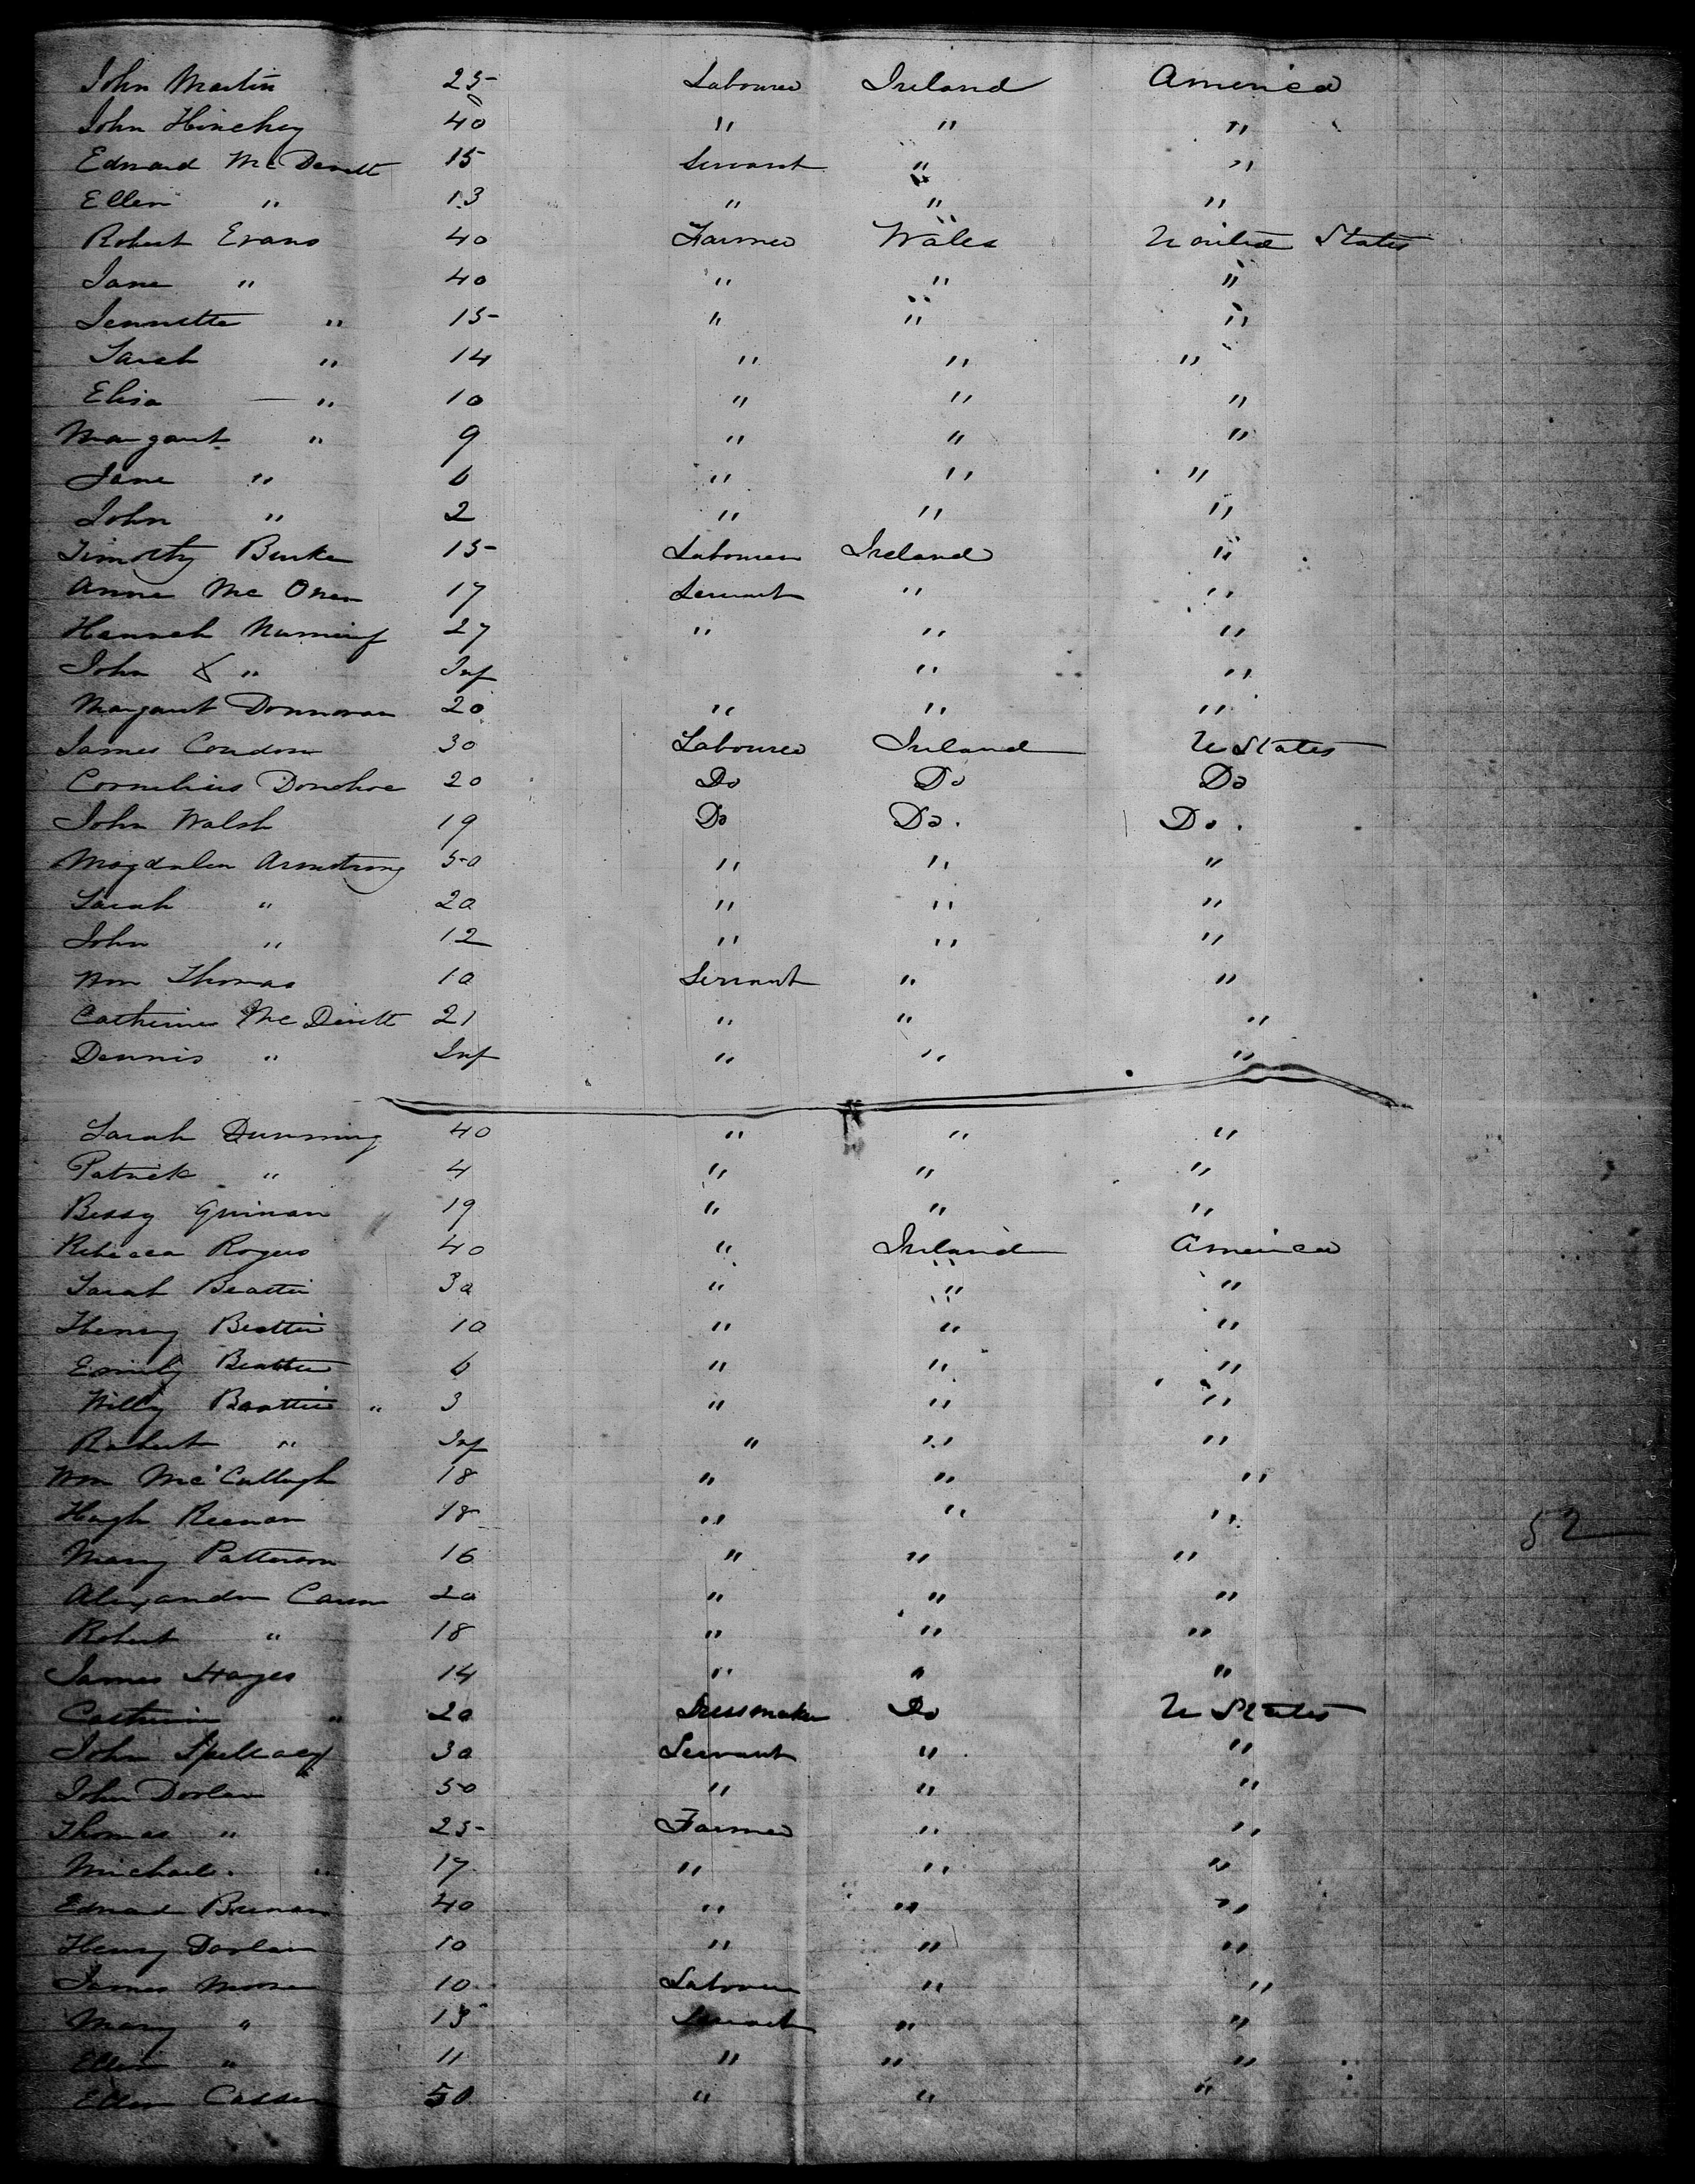 John Martin 25 Labourer Ireland America
John Hinchey 40 " " "
Edward McDevitt 15 Servant " "
Ellen " 13 " " "
Robert Evans 40 Farmer Wales United States
Jane " 40 " " "
Jennette " 15 " " "
Sarah " 14 " " "
Elisa " 10 " " "
Margaret " 9 " " "
Jane " 6 " " "
John " 2 " " "
Timothy Burke 15 Labourer Ireland "
Anne Mc Owen 17 Servant " "
Hannah 27 " " "
John " Inf " "
Margaret Donnovan 20 " " "
James Condon 30 Labourer Ireland U States
Cornelius Donohoe 20 Do Do Do
John Walsh 19 Do Do. Do.
Magdalen Armstrong 50 " " "
Sarah " 20 " " "
John " 12 " " "
Wm Thomas 10 Servant " "
Catherine McDevitt 21 " " "
Dennis " Inf " " "
Sarah Dunning 40 " " "
Patrick " 4 " " "
Bessy Guinan 19 " " "
Rebecca Rogers 40 " Ireland America
Sarah Beattie 30 " " "
Henry Beattie 10 " " "
Emily Beattie 6 " " "
Willy Beattie " 3 " " "
Robert " Inf " " "
Wm McCullagh 18 " " "
Hugh Keenan 18 " " "
Mary Patterson 16 " " "
52
Alexander 20 " " "
Robert " 18 " " "
James Hayes 14 " " "
Catherine " 20 Dressmaker Do U States
John Spellacy 30 Servant " "
John Dorlan 50 " " "
Thomas " 25 Farmer " "
Michael " 17 " " "
Edward Brenan 40 " " "
Henry Dorlan 10 " " "
James Moore 10 Labourer " "
Mary " 15 Servant " "
Ellen " 11 " " "
Ellen 50 " " "